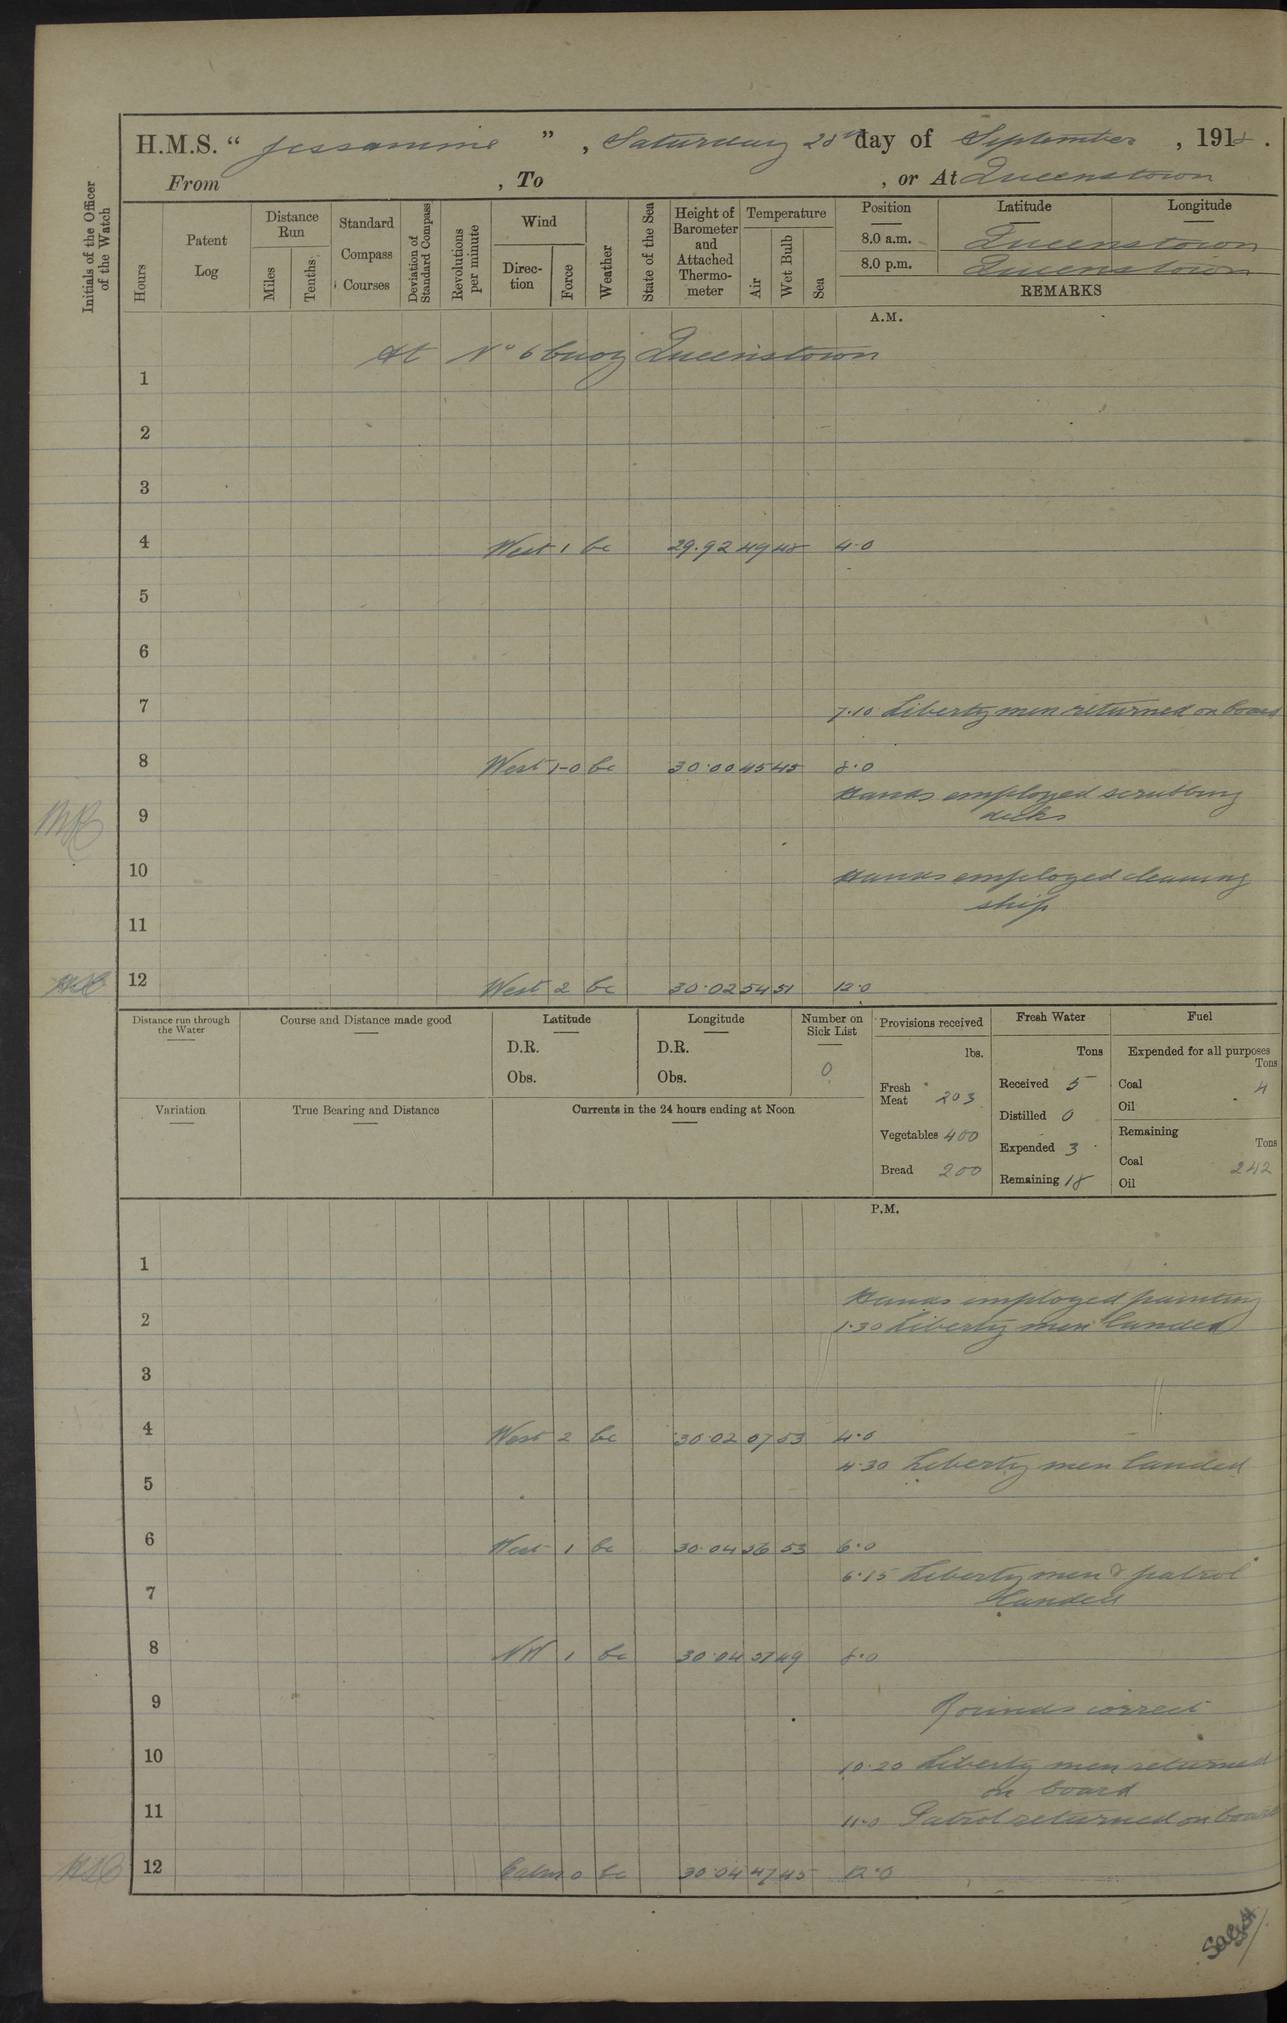 H.M.S. " Jessamine ", Saturday 28th day of September, 1918.
From , To , or At Queenstown
Initials of the Officer of the Watch
Hours
Patent Log
Distance Run
Miles
Tenths
Standard Compass Courses
Deviation of Standard Compass
Revolutions per minute
Wind
Direc-tion
Force
Weather
State of the Sea
Height of Barometer and Attached Thermo-meter
Temperature
Air
Wet Bulb
Sea
Position Latitude Longitude
8.0 a.m. Queenstown
8.0 p.m. Queenstown
REMARKS
A.M.
At No 6 buoy Queenstown
1
2
3
4 West 1 bc 29.92 49 48 4.0
5
6
7 7.10 Liberty men returned on board
8 West 1-0 bc 30.00 45 45 8.0
Hands employed scrubbing
9 decks
10 Hands employed cleaning
ship
11
12 West 2 bc 30.02 54 51 12.0
Distance run through the Water
Course and Distance made good
Latitude
D.R.
Obs.
Longitude
D.R.
Obs.
Number on Sick List
0
Variation
True Bearing and Distance
Currents in the 24 hours ending at Noon
Provisions received
lbs.
Fresh Meat 203
Vegetables 400
Bread 200
Fresh Water
Tons
Received 5
Distilled 0
Expended 3
Remaining 18
Fuel
Expended for all purposes
Tons
Coal 4
Oil
Remaining
Tons
Coal 242
Oil
P.M.
1
Hands employed painting
2 1.30 Liberty men landed
3
4 West 2 bc 30.02 53 4.0
4.30 Liberty men landed
5
6 West 1 bc 30.04 56 53 6.0
6.15 Liberty men & patrol
7 landed
8 NW 1 bc 30.04 51 49 8.0
9 Rounds correct
10 10.20 Liberty men returned
on board
11 11.0 Patrol returned on board
12 Calm 0 bc 30.04 47 45 12.0